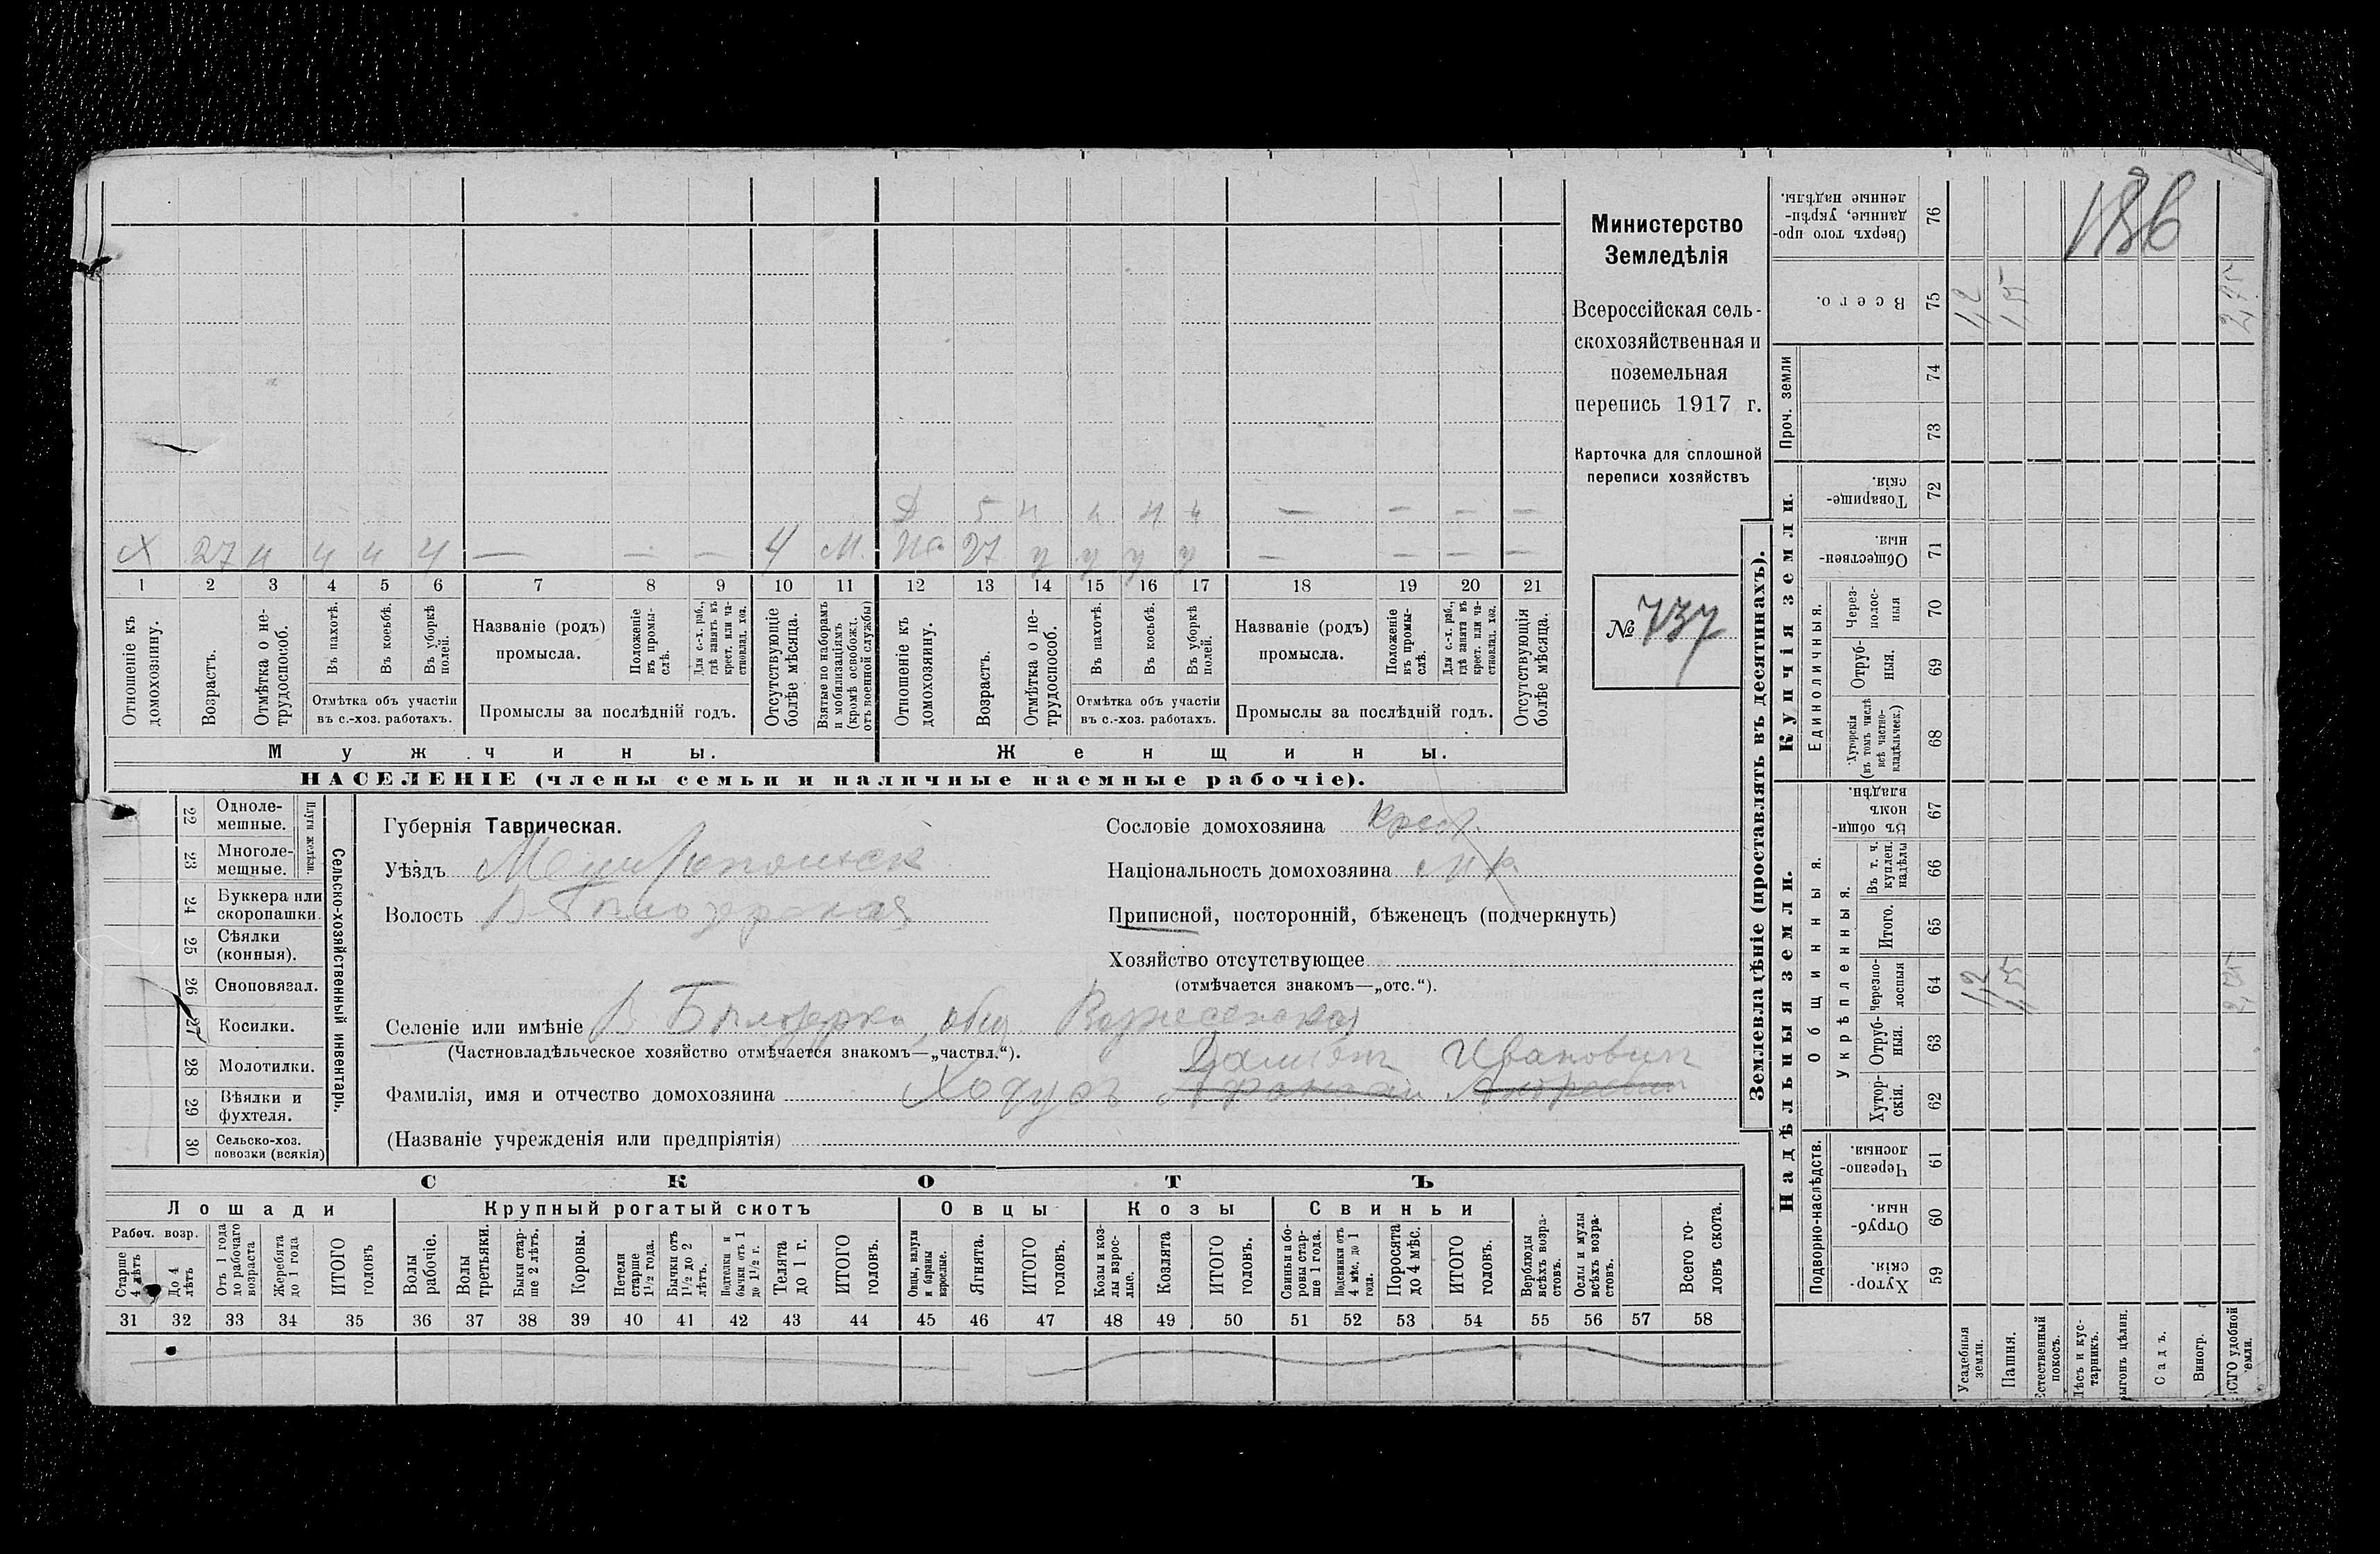 186
Министерство
Земледѣлія
Всероссійская сель-
скохозяйственная и
поземельная
перепись 1917 г.
Карточка для сплошной
переписи хозяйствъ
№ 737
Д 5 — — — —
Х 27 — — — Ч М. 27 — — — —
1 2 3 4 5 6 7 8 9 10 11 12 13 14 15 16 17 18 19 20 21
Отношеніе къ домохозяину.
Возрастъ.
Отмѣтка о не-трудоспособ.
Въ пахотѣ.
Въ косьбѣ.
Въ уборкѣ полей.
Отмѣтка объ участіи
въ с.-хоз. работахъ.
Названіе (родъ)
промысла.
Положеніе въ промы-слѣ.
Для с.-х. раб., гдѣ занятъ въ крест. или ча-стновлад. хоз.
Промыслы за послѣдній годъ.
Отсутствующіе болѣе мѣсяца.
Взятые по наборамъ и мобилизаціямъ (кромѣ освобожд. отъ военной службы)
Отношеніе къ домохозяину.
Возрастъ.
Отмѣтка о не-трудоспособ.
Въ пахотѣ.
Въ косьбѣ.
Въ уборкѣ полей.
Отмѣтка объ участіи
въ с.-хоз. работахъ.
Названіе (родъ)
промысла.
Положеніе въ промы-слѣ.
Для с.-х. раб., гдѣ занята въ крест. или ча-стновлад. хоз.
Промыслы за послѣдній годъ.
Отсутствующія болѣе мѣсяца.
Мужчины.
Женщины.
НАСЕЛЕНІЕ (члены семьи и наличные наемные рабочіе).
22 Одноле-мешные.
23 Многоле-мешные.
Плуги желѣзн.
24 Буккера или скоропашки.
25 Сѣялки (конныя).
26 Сноповязал.
27 Косилки.
28 Молотилки.
29 Вѣялки и фухтеля.
30 Сельско-хоз. повозки (всякія)
Сельско-хозяйственный инвентарь.
Губернія Таврическая.
Уѣздъ
Волость
Сословіе домохозяина крест.
Національность домохозяина
Приписной, посторонній, бѣженецъ (подчеркнуть)
Хозяйство отсутствующее
(отмѣчается знакомъ—„отс.“).
Селеніе или имѣніе В Бѣлозерка, общ
(Частновладѣльческое хозяйство отмѣчается знакомъ—„частвл.“).
Ивановичъ
Фамилія, имя и отчество домохозяина Ходусъ
(Названіе учрежденія или предпріятія)
СКОТЪ
Лошади
Крупный рогатый скотъ
Овцы
Козы
Свиньи
Рабоч. возр.
Старше 4 лѣтъ
До 4 лѣтъ
Отъ 1 года до рабочаго возраста
Жеребята до 1 года
ИТОГО головъ
Волы рабочіе.
Волы третьяки.
Быки стар-ше 2 лѣтъ.
Коровы.
Нетели старше 1½ года.
Бычки отъ 1½ до 2 лѣтъ.
Подтелки и бычки отъ 1 до 1½ г.
Телята до 1 г.
ИТОГО головъ.
Овцы, валухи и бараны взрослые.
Ягнята.
ИТОГО головъ.
Козы и коз-лы взрос-лые.
Козлята
ИТОГО головъ.
Свиньи и бо-ровы стар-ше 1 года.
Подсвинки отъ 4 мѣс. до 1 года.
Поросята до 4 мѣс.
ИТОГО головъ.
Верблюды всѣхъ возра-стовъ.
Ослы и мулы всѣхъ возра-стовъ.
Всего го-ловъ скота.
31 32 33 34 35 36 37 38 39 40 41 42 43 44 45 46 47 48 49 50 51 52 53 54 55 56 57 58
Землевладѣніе (проставлять въ десятинахъ).
Надѣльныя земли.
Купчія земли.
Проч. земли
Подворно-наслѣдств.
Общинныя.
Укрѣпленныя.
Единоличныя.
Сверхъ того про-данные, укрѣп-ленные надѣлы. 76
Всего. 75 1,2 1,55 2,75
74
73
Товарище-скія. 72
Обществен-ныя. 71
Через-полос-ныя 70
Отруб-ныя. 69
Хуторскія (въ томъ числѣ всѣ частно-владѣльческ.) 68
Въ общи-номъ владѣн. 67
Въ т. ч. куплен. надѣлы 66
Итого. 65
Черезпо-лосныя 64 1,2 1,55 2,75
Отруб-ныя. 63
Хутор-скія. 62
Черезпо-лосныя. 61
Отруб-ныя. 60
Хутор-скія. 59
Усадебныя земли.
Пашня.
Естественный покосъ.
Лѣсъ и кус-тарникъ.
Выгонъ цѣлин.
Садъ.
Виногр.
ВСЕГО удобной земли.